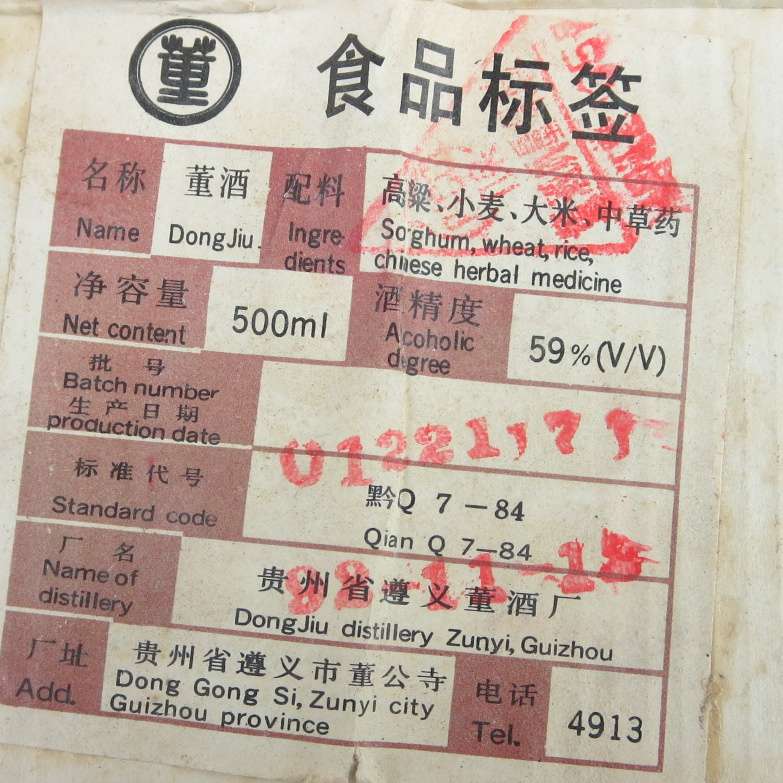 董 食品标签
名称 董酒 配料 高粱、小麦、大米、中草药
Name DongJiu. Ingre- Sorghum, wheat, rice,
dients chinese herbal medicine
净容量 500ml 酒精度 59%(V/V)
Net content Acoholic
degree
批号
Batch number
生产日期
production date
标准代号 黔Q 7-84
Standard code Qian Q 7-84
厂名 贵州省遵义董酒厂
Name of DongJiu distillery Zunyi, Guizhou
distillery
92-11-
厂址 贵州省遵义市董公寺 电话 4913
Add. Dong Gong Si, Zunyi city Tel.
Guizhou province